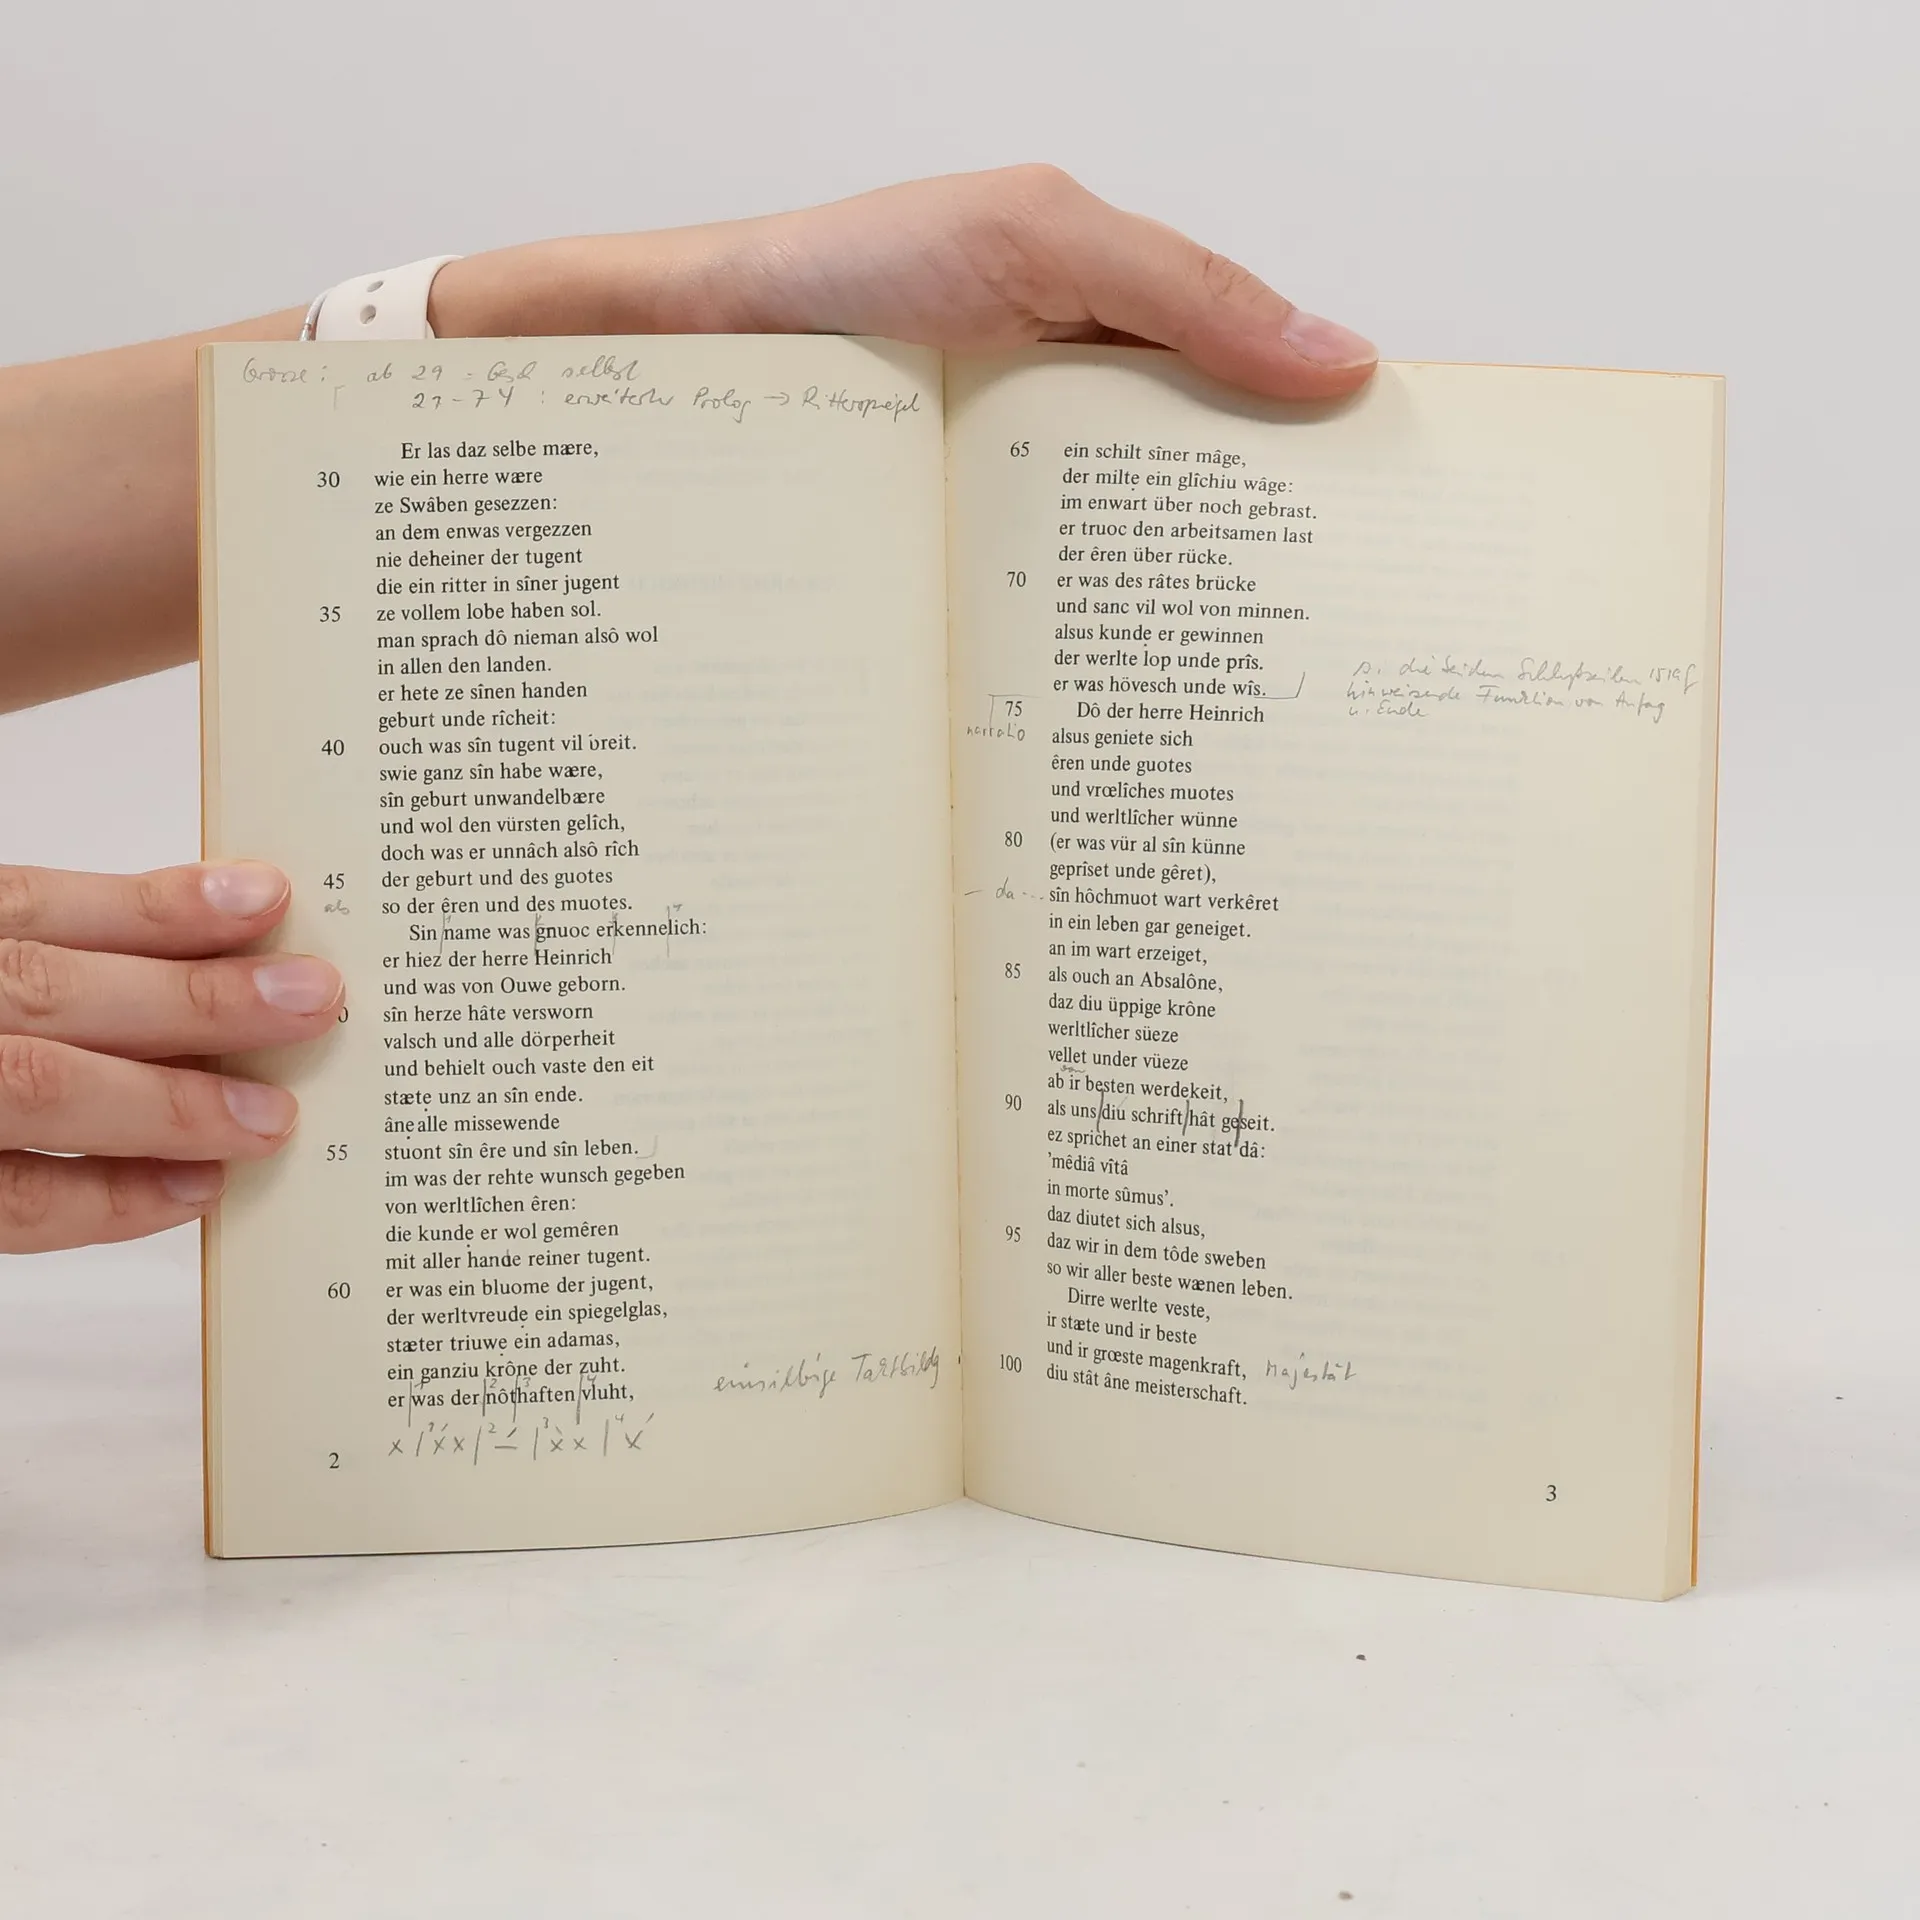 ab 29 = selbst
27-74: erweiterter Prolog → Ritterspiegel
Er las daz selbe mære,
30 wie ein herre wære
ze Swâben gesezzen:
an dem enwas vergezzen
nie deheiner der tugent
die ein ritter in sîner jugent
35 ze vollem lobe haben sol.
man sprach dô nieman alsô wol
in allen den landen.
er hete ze sînen handen
geburt unde rîcheit:
40 ouch was sîn tugent vil breit.
swie ganz sîn habe wære,
sîn geburt unwandelbære
und wol den vürsten gelîch,
doch was er unnâch alsô rîch
45 der geburt und des guotes
als so der êren und des muotes.
Sin name was gnuoc erkennelich:
er hiez der herre Heinrich
und was von Ouwe geborn.
0 sîn herze hâte versworn
valsch und alle dörperheit
und behielt ouch vaste den eit
stætẹ unz an sîn ende.
ânẹ alle missewende
55 stuont sîn êre und sîn leben.
im was der rehte wunsch gegeben
von werltlîchen êren:
die kundẹ er wol gemêren
mit aller hande reiner tugent.
60 er was ein bluome der jugent,
der werltvreudẹ ein spiegelglas,
stæter triuwẹ ein adamas,
ein ganziu krônẹ der zuht.
er was der nôthaften vluht,
einsilbige Taktbildg
x | x́x | – | x̀x | x́
2
65 ein schilt sîner mâge,
der miltẹ ein glîchiu wâge:
im enwart über noch gebrast.
er truoc den arbeitsamen last
der êren über rücke.
70 er was des râtes brücke
und sanc vil wol von minnen.
alsus kundẹ er gewinnen
der werlte lop unde prîs.
er was hövesch unde wîs.
s. die beiden Schlußzeilen 1519f
hinweisende Funktion von Anfang
u. Ende
75 Dô der herre Heinrich
narratio alsus geniete sich
êren unde guotes
und vrœlîches muotes
und werltlîcher wünne
80 (er was vür al sîn künne
geprîset unde gêret),
– da ... sîn hôchmuot wart verkêret
in ein leben gar geneiget.
an im wart erzeiget,
85 als ouch an Absalône,
daz diu üppige krône
werltlîcher süeze
vellet under vüeze
von
ab ir besten werdekeit,
90 als uns diu schrift hât geseit.
ez sprichet an einer stat dâ:
'mêdiâ vîtâ
in morte sûmus'.
daz diutet sich alsus,
95 daz wir in dem tôde sweben
so wir aller beste wænen leben.
Dirre werlte veste,
ir stæte und ir beste
und ir grœste magenkraft, Majestät
100 diu stât âne meisterschaft.
3